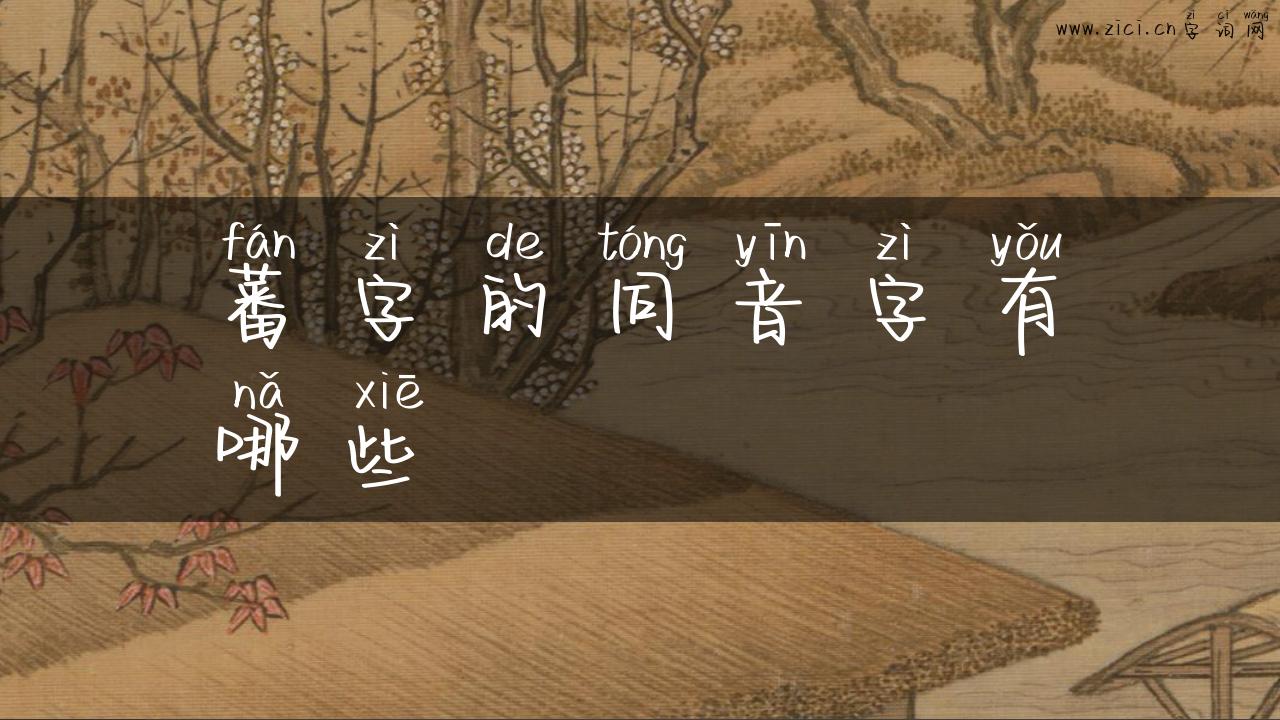 zì cí wǎng
www.zici.cn 字词网
fán zì de tóng yīn zì yǒu
蕃字的同音字有
nǎ xiē
哪些